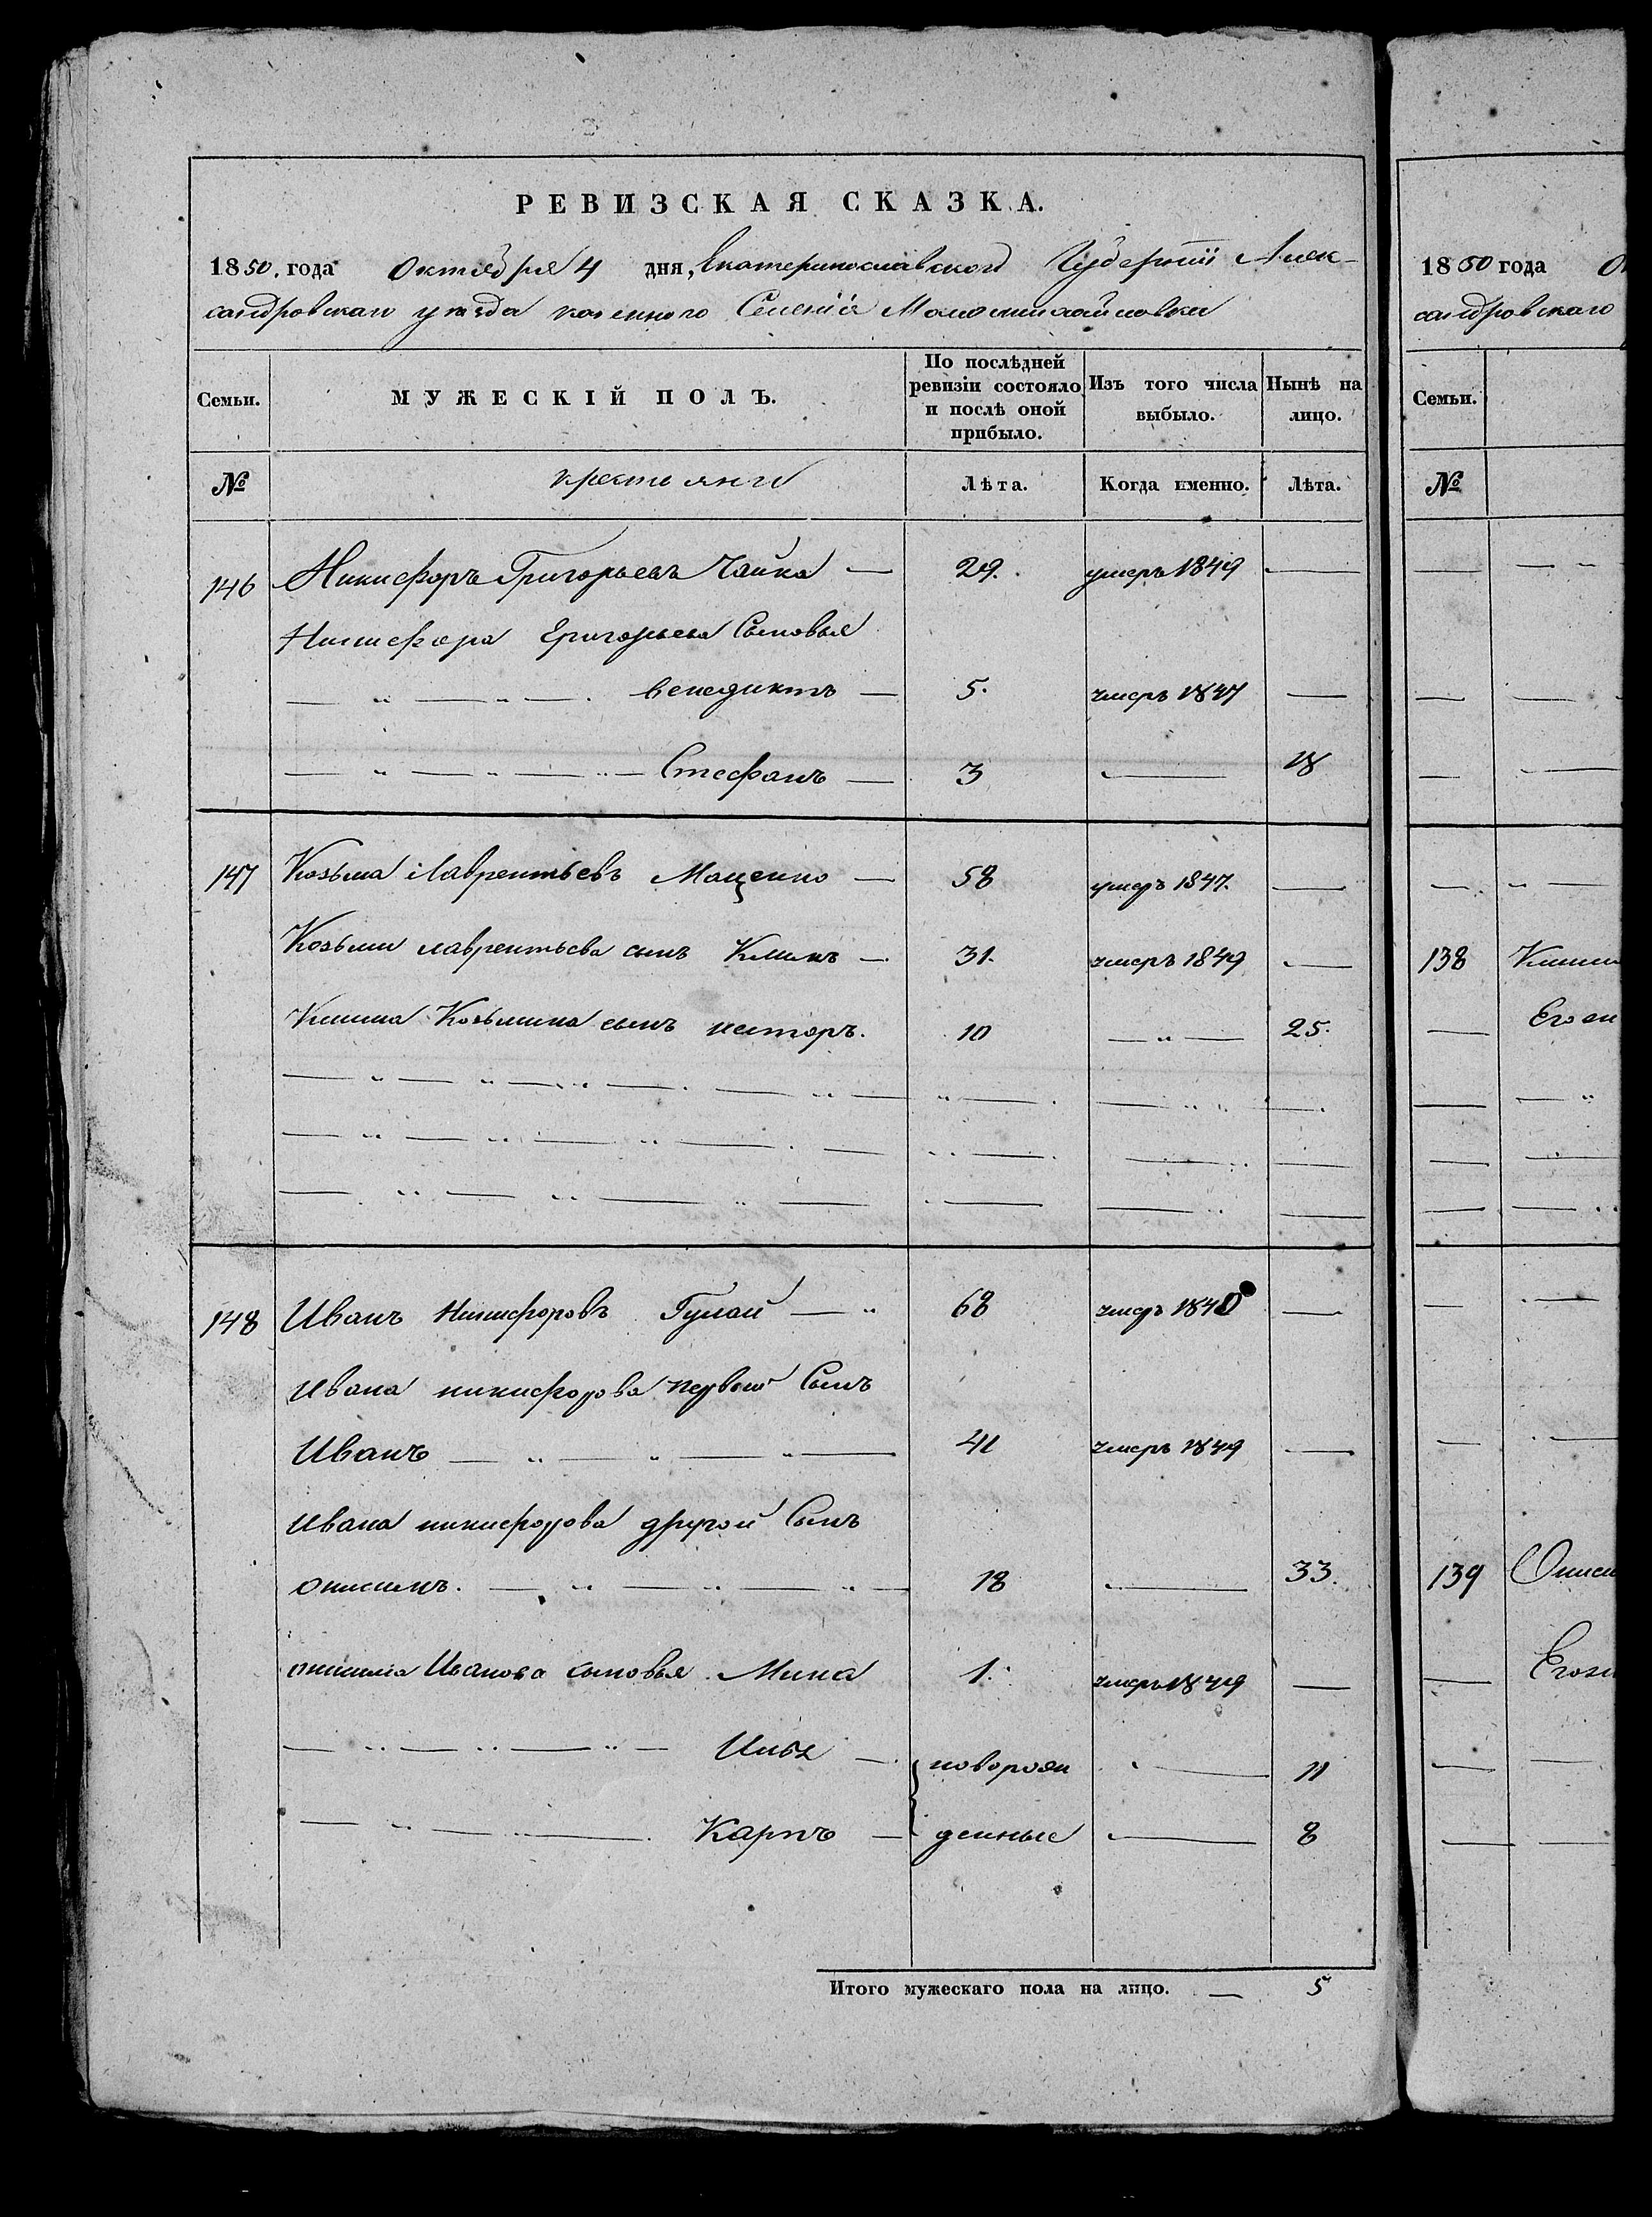 РЕВИЗСКАЯ СКАЗКА.
1850, года Октября 4 дня, Екатеринославской Губернии Алек-
сандровскаго уѣзда казенного Селенія Маломихайловки
Семьи. МУЖЕСКІЙ ПОЛЪ. По послѣдней ревизіи состояло и послѣ оной прибыло. Изъ того числа выбыло. Нынѣ на лицо.
№ крестьяне Лѣта. Когда именно. Лѣта.
146 Никифоръ Григорьевъ Чайка — 29. умеръ 1849 —
Никифора Григорьева Сыновья
Венедиктъ — 5. умеръ 1847 —
Стефанъ — 3 — 18
147 Козьма Лаврентьевъ Маценко — 58 умеръ 1847. —
Козьмы лаврентьева сынъ Климъ — 31. умеръ 1849 —
Клима Козьмина сынъ несторъ. 10 — " — 25.
148 Иванъ Никифоровъ Гулай — " 68 умеръ 1840 —
Ивана никифорова первой Сынъ
Иванъ — 41 умеръ 1849 —
Ивана никифорова другой Сынъ
онисимъ. — 18 — 33.
онисима Иванова сыновья Мина 1. умеръ 1849 —
Илья — новорож — 11
Карпъ — денные — 8
Итого мужескаго пола на лицо. — 5
1850 года
сандровскаго
Семьи.
№
138
Его
139